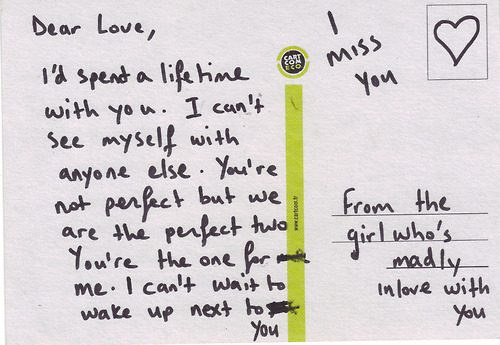 Dear Love,
I'd spend a lifetime
with you. I can't
see myself with
anyone else. You're
not perfect but we
are the perfect two
You're the one for
me. I can't wait to
wake up next to
You
CART
CON
ECO
www.cartcon.fr
I
miss
you
From the
girl who's
madly
inlove with
you